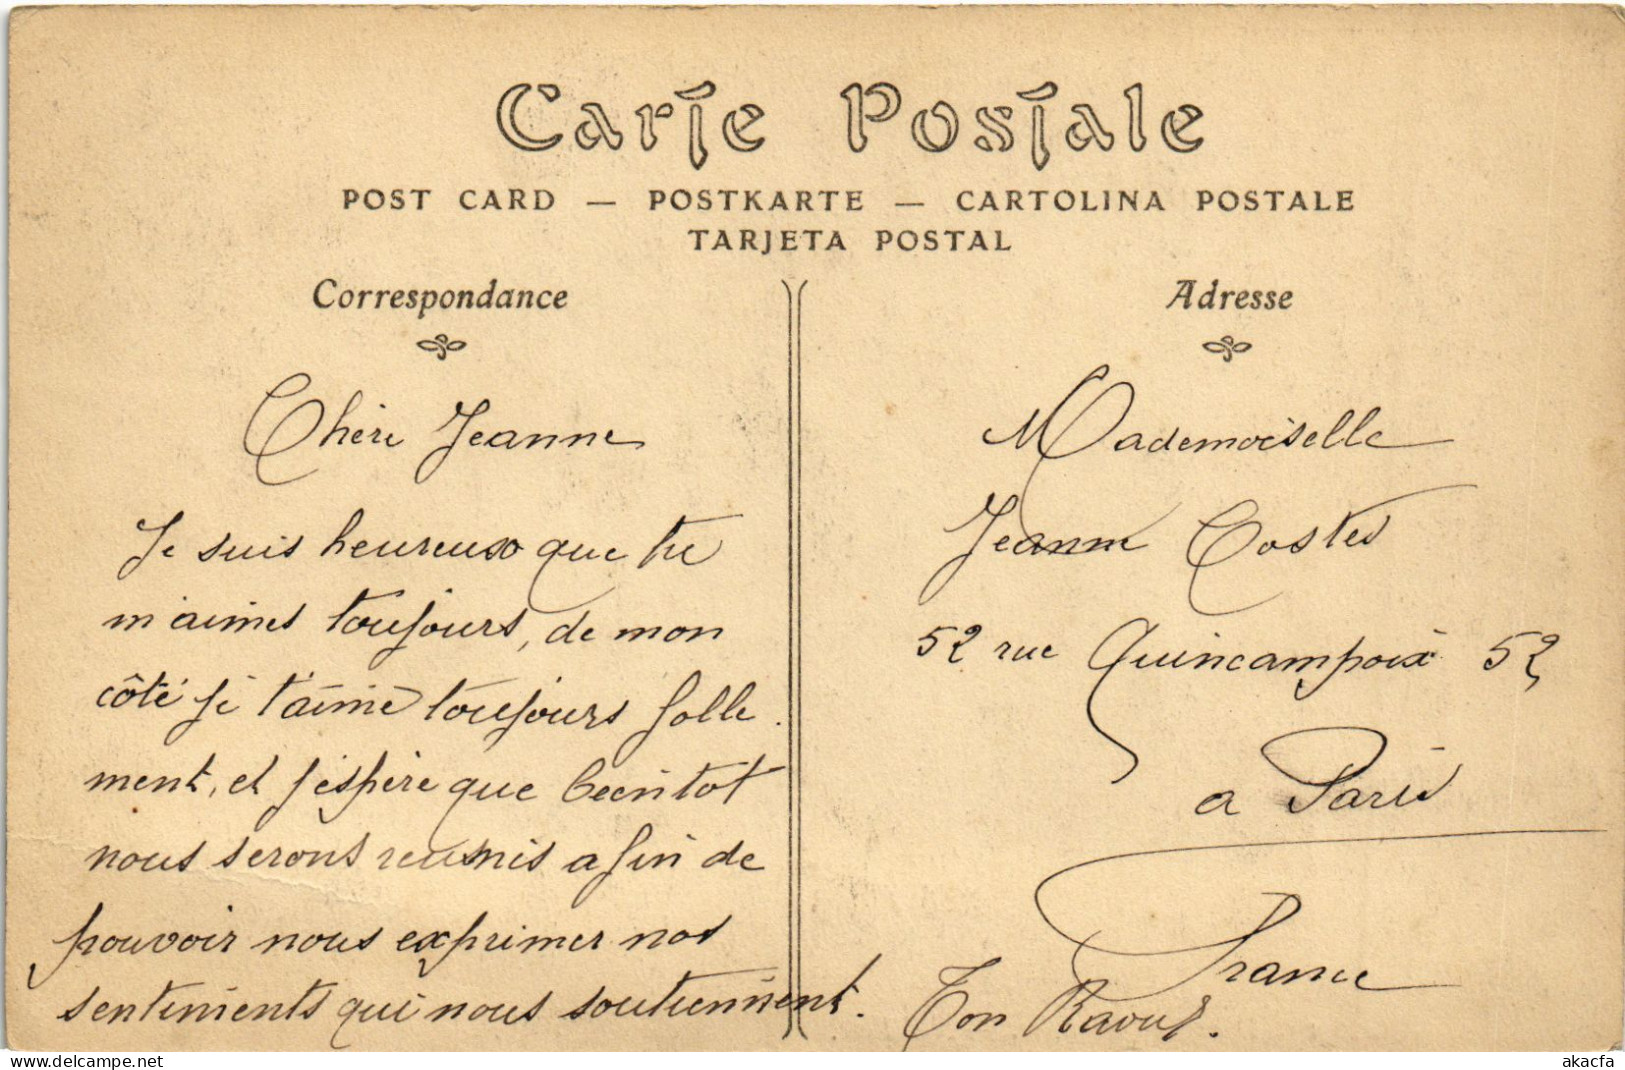 Carte Postale
POST CARD — POSTKARTE — CARTOLINA POSTALE
TARJETA POSTAL
Correspondance
Chère Jeanne
Je suis heureux que tu
m'aimes toujours, de mon
côté je t'aime toujours folle
ment, et j'éspère que bientot
nous serons reunnis afin de
pouvoir nous exprimer nos
sentiments qui nous soutiennent.
Adresse
Mademoiselle
Jeanne Costes
52 rue Quincampoix 52
a Paris
France
Ton Raoul.
delcampe.net
akacfa